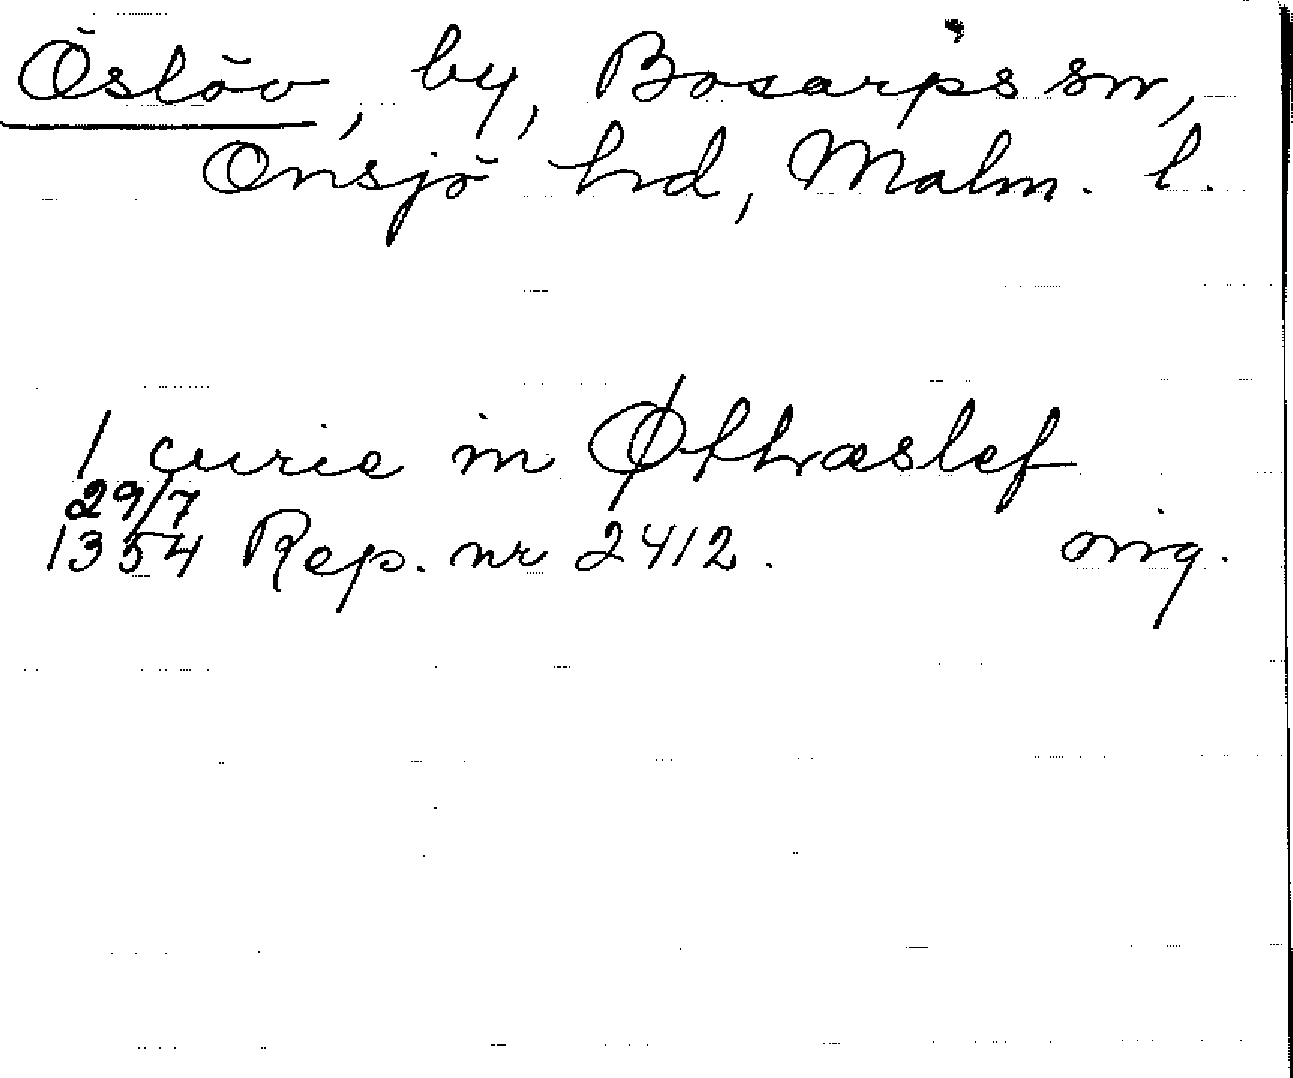 Öslöv, by, Bosarps sn,
Onsjö hd, Malm. l.
1 curie in Øthræslef
29/7
1354 Rep. nr 2412. orig.